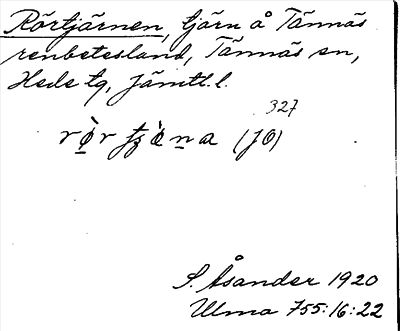 Rörtjärnen, tjärn å Tännäs
renbetesland, Tännäs sn,
Hede tg, Jämtl. l.
327
(JO)
S. Åsander 1920
Ulma 755:16:22